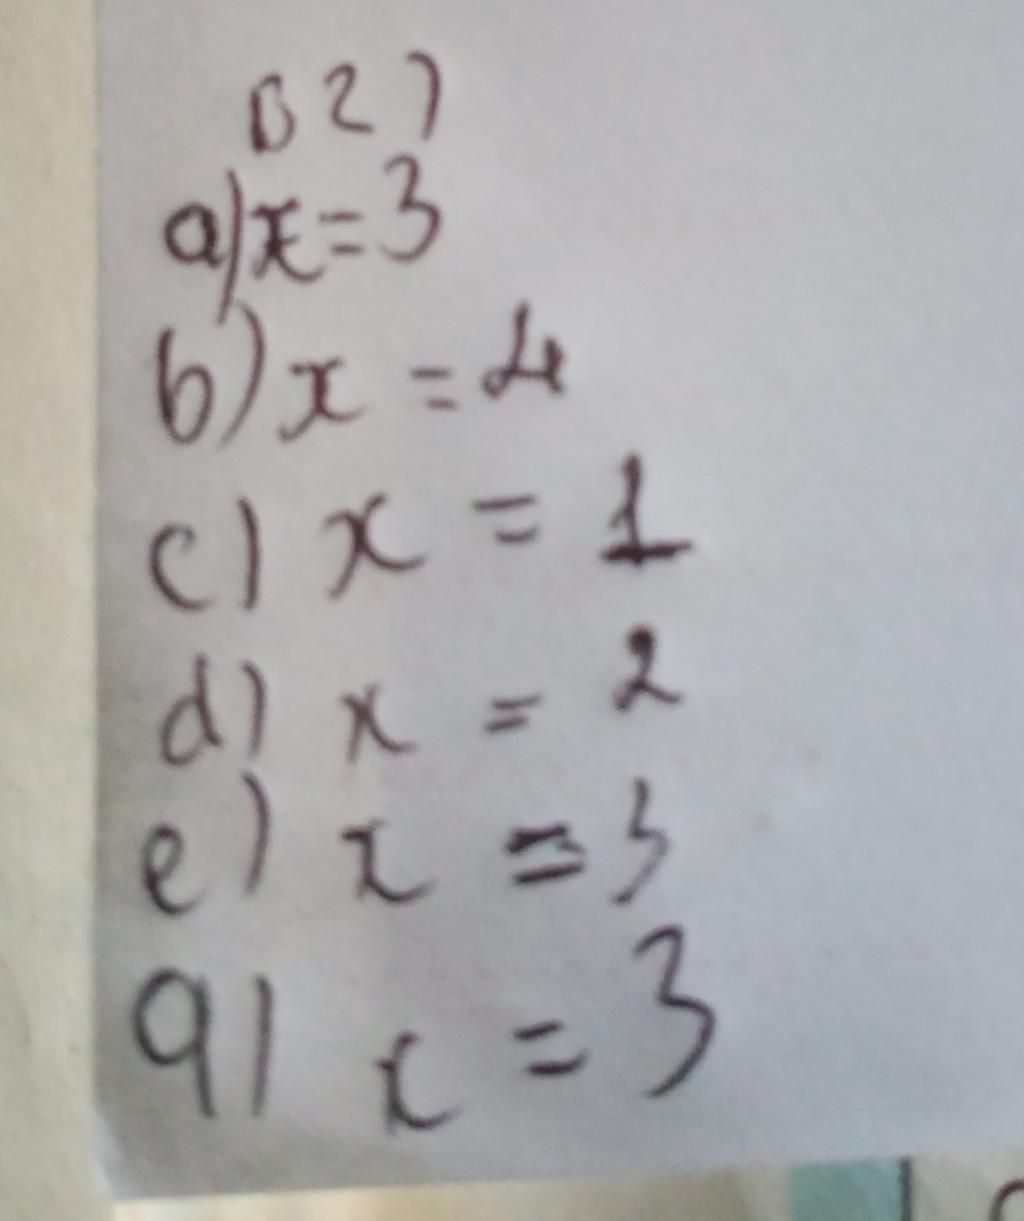 B2)
a) x = 3
b) x = 4
c) x = 1
d) x = 2
e) x = 3
9) x = 3